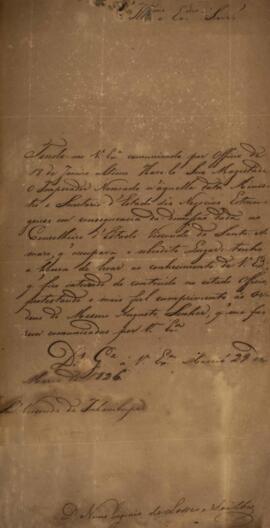 Illmo e Exmo Senr
Tendo me V. Exª communicado por Officio de
de Janeiro ultimo Haver Sua Magestade
O Imperador Nomeado n'aquella data Minis
tro e Secretario d'Estado dos Negocios Estran
geiros em consequencia da demissão dada ao
Conselheiro d'Estado Visconde de Santo A
maro, a occupar o sobredito Lugar: tenho
a honra de levar ao conhecimento de V. Exª
q' fico inteirado do contheudo no citado Officio,
protestando o mais fiel cumprimento às Or
dens do Mesmo Augusto Senhor, q' me fo
rem communicadas por V. Exª
Ds. Ge. a V. Exª 29 de
de 1826
Visconde de Inhambupe
D. Nuno Eugenio de Lossio e Seiblitz